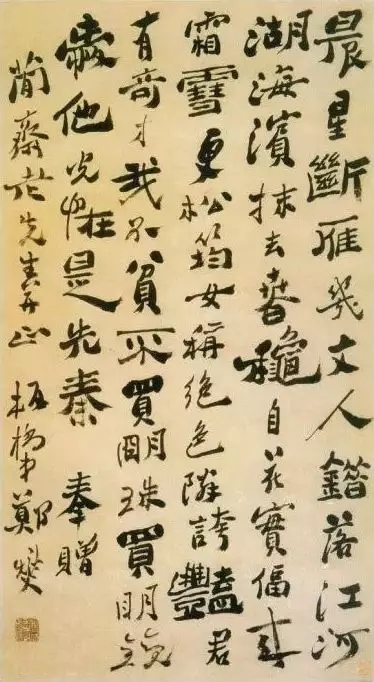 晨星斷雁幾文人錯落江河
湖海濱抹去春龝自花實偪來
霜雪更松筠女稱絕色隣誇豔君
有奇才我不貧不買明珠買明鏡
愛他光怪是先秦 奉贈
簡齋老先生正 板橋弟鄭燮